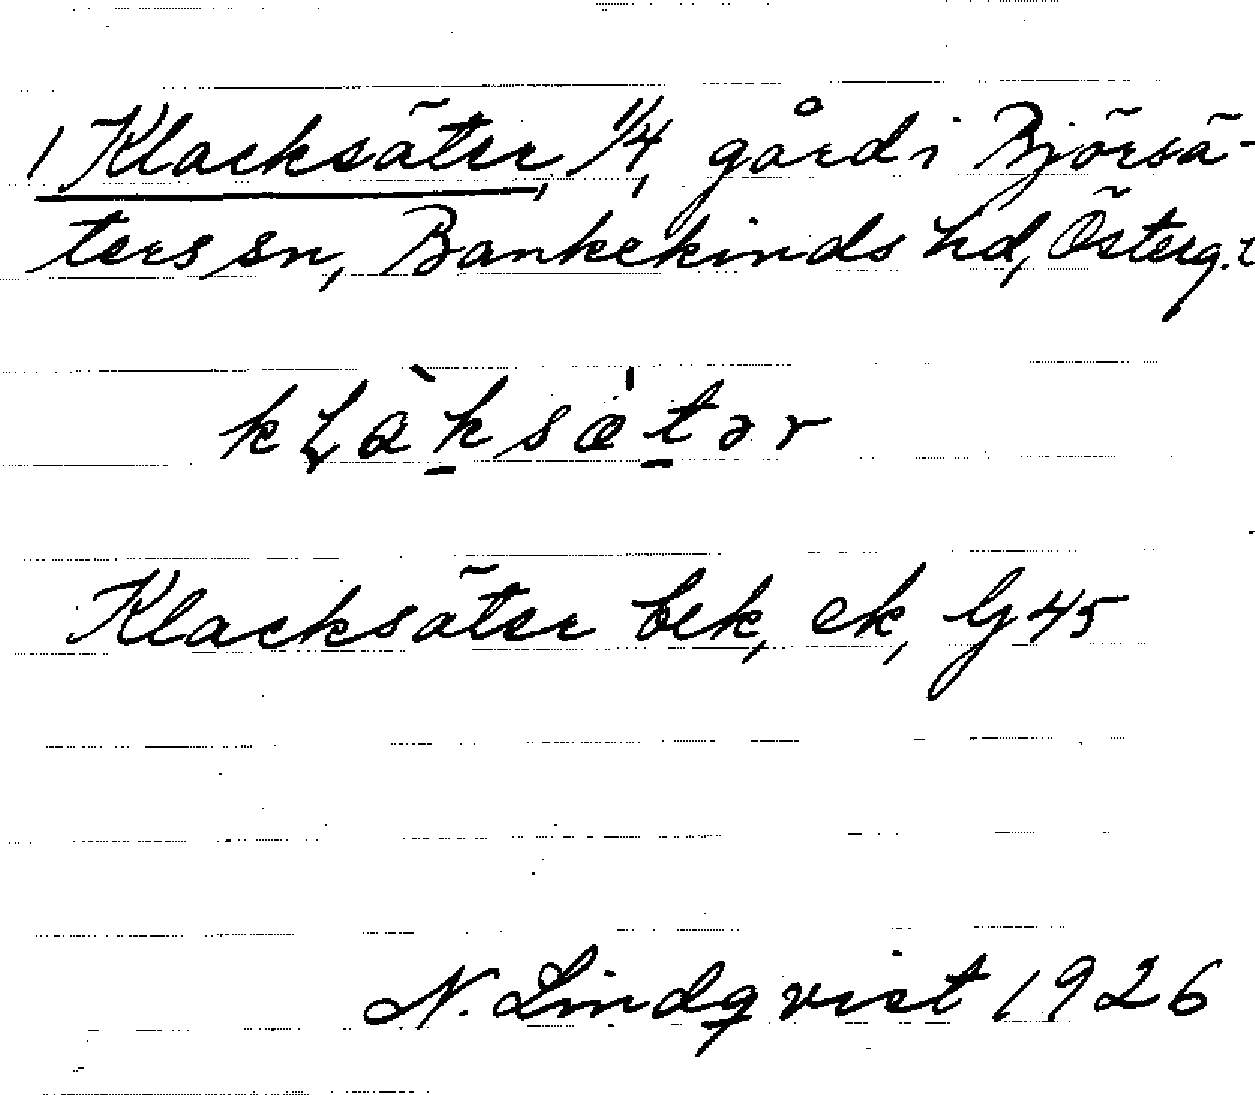 1 Klacksäter, 1/4, gård i Björsä-
ters sn, Bankekinds hd, Österg.
klàksætər
Klacksäter bek, ek, G 45
N. Lindqvist 1926